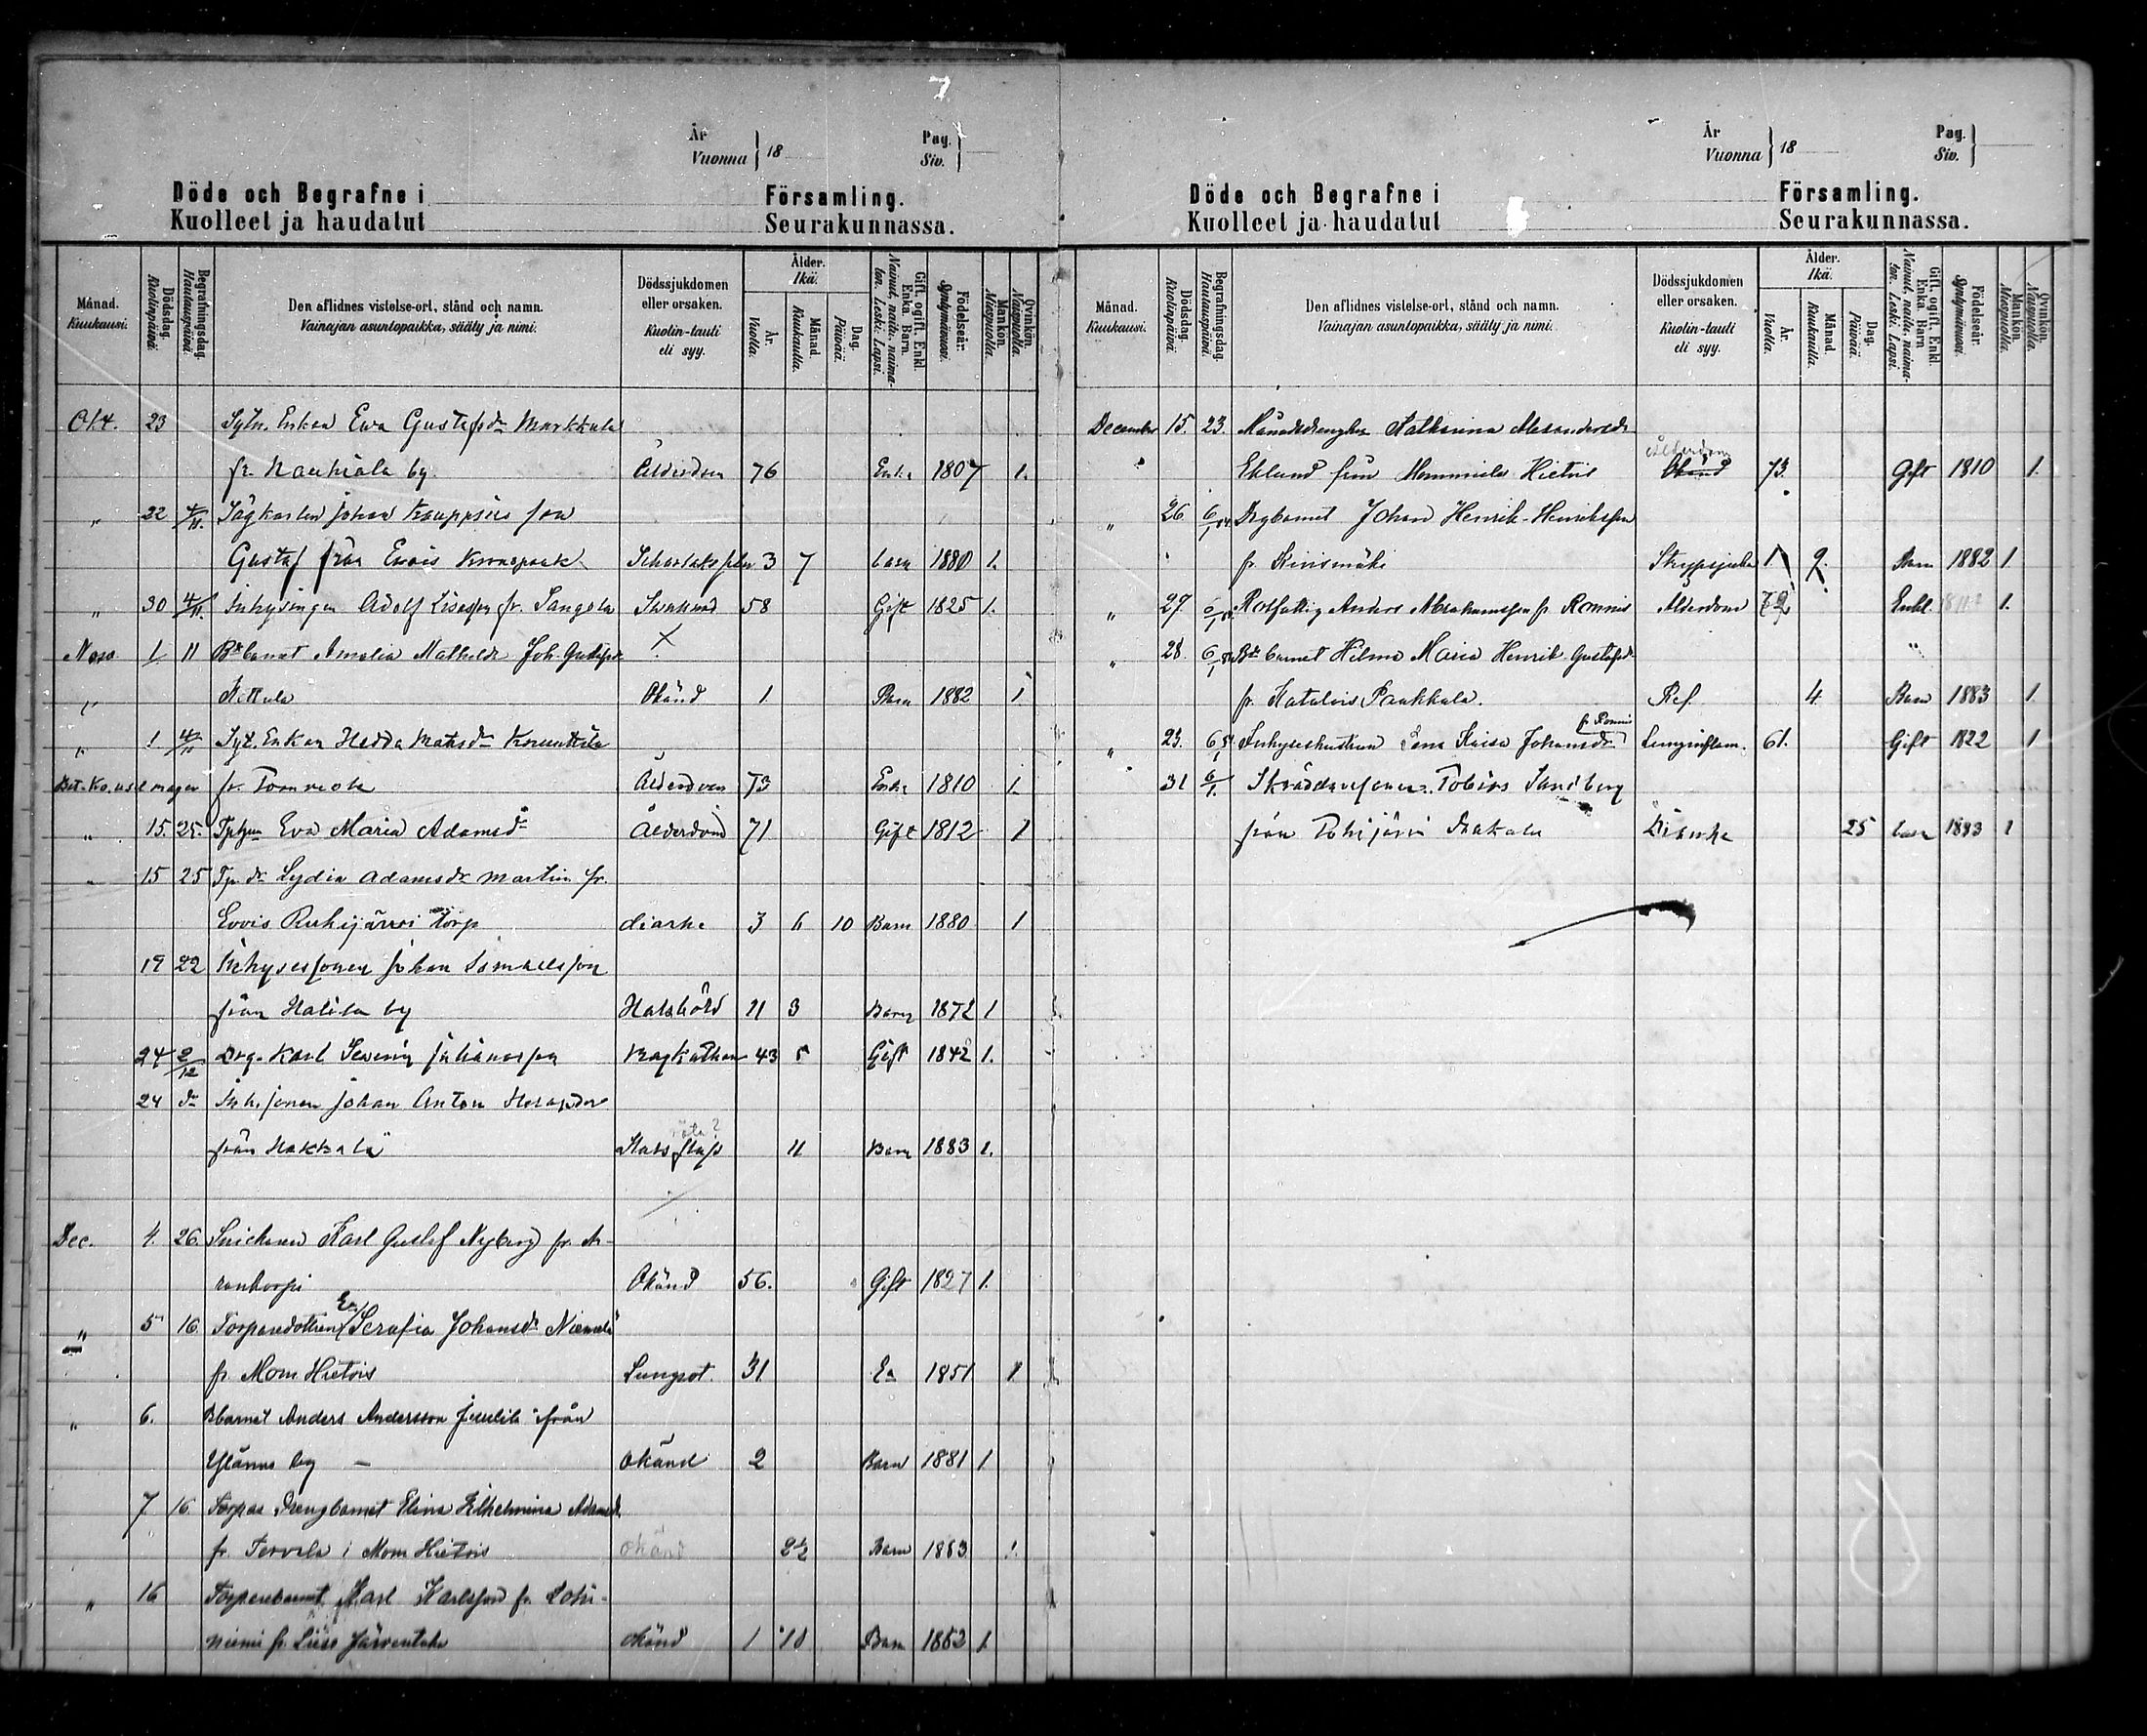 7
År
Vuonna } 18
Pag.
Siv. }
Döde och Begrafne i Församling.
Kuolleet ja haudatut Seurakunnassa.
Månad. Kuukausi.
Dödsdag. Kuolinpäivä.
Begrafningsdag. Hautauspäivä.
Den aflidnes vistelse-ort, stånd och namn.
Vainajan asuntopaikka, sääty ja nimi.
Dödssjukdomen eller orsaken.
Kuolin-tauti eli syy.
Ålder. Ikä.
År. Vuotta.
Månad. Kuukautta.
Dag. Päivää.
Gift, ogift, Enkl. Enka. Barn.
Nainut, naitu, naimaton. Leski. Lapsi.
Födelseår. Syntymävuosi.
Mankön. Miespuolta.
Qvinkön. Naispuolta.
Okt. 23 Sytn. Enkan Ewa Gustafsdr Markkula
fr. Nauhiala by. Ålderdom 76 Enka 1807 1.
" 22 4/11. Sågkarlen Johan Kauppis son
Gustaf från Evois Kronopark 3 7 barn 1880 1.
" 30 4/11. Inhysingen Adolf fr. Sangola 58 Gift 1825 1.
1 11 Bdebarnet Amalia Mathilda Joh. Gustafsdr
Kettula Okänd 1 Barn 1882 1
" 1 4/11 Syt. Enkan Hedda Matsdr
fr. Ålderdom 73 Enka 1810 1.
" 15. 25. Eva Maria Adamsdr Ålderdom 71 Gift 1812 1
" 15 25 Tp. dr Lydia Adamsdr Martin fr.
Evois Ruhijärvi torp diarhe 3 6 10 Barn 1880 1
19 22 Inhysessonen Johan Ismaelsson
från Halila by Halsböld 11 3 Barn 1872 1
24 2/12 Drg. Karl Severin Julianasson Magkathar 43 5 Gift 1842 1.
24 do Inh. sonen Johan Anton
från Hakkala 11 Barn 1883 1.
Dec. 4. 26. Snickaren Karl Gustaf Nyberg fr. A-
rankorpi Okänd 56. Gift 1827 1.
" 5 16. Torparedottren Serafia Johansdr Niemelä
fr Mom Hietois Lungsot. 31 1851 1
" 6. Bbarnet Anders Andersson från
Ylänne by Okänd 2 Barn 1881 1
7 16 Torpar Drengbarnet Elina Wilhelmina Adamsdr
fr. Tervela i Mom Hietois Okänd 2½ Barn 1883 1.
" 16 Torparebarnet Karl Karlsson fr. Lohi-
niemi fr. Järventaka okänd 1 10 Barn 1882 1.
År
Vuonna } 18
Pag.
Siv. }
Döde och Begrafne i Församling.
Kuolleet ja haudatut Seurakunnassa.
Månad. Kuukausi.
Dödsdag. Kuolinpäivä.
Begrafningsdag. Hautauspäivä.
Den aflidnes vistelse-ort, stånd och namn.
Vainajan asuntopaikka, sääty ja nimi.
Dödssjukdomen eller orsaken.
Kuolin-tauti eli syy.
Ålder. Ikä.
År. Vuotta.
Månad. Kuukautta.
Dag. Päivää.
Gift, ogift, Enkl. Enka. Barn
Nainut, naitu, naimaton. Leski. Lapsi.
Födelseår. Syntymävuosi.
Mankön. Miespuolta.
Qvinkön. Naispuolta.
December 15. 23. Katharina Alexandersdr
Ålderdom
Eklund från Mommila Hietois Okänd 73. Gift 1810 1.
" 26 6/1 84 Drgbarnet Johan Henrik Henriksson
fr. Kivismäki Strypsjuka 1 9. Barn 1882 1
" 27. Rotfattig Anders Abrahamsson fr. Ronnis Ålderdom 72 Enkl. 1811? 1.
" 28 6/1 84 Bdebarnet Hilma Maria Henrik Gustafsdr
fr. Katalois Paakkala. Ref. 4. Barn 1883 1.
fr. Ronnis
" 29. 6/1 84 Inhyseshustrun Lena Kaisa Johansdr Lunginflam. 61. Gift 1822 1
" 31 6/1. Skräddaresonen Tobias Sandberg
från Pohijärvi Diarrhe 25 barn 1883 1